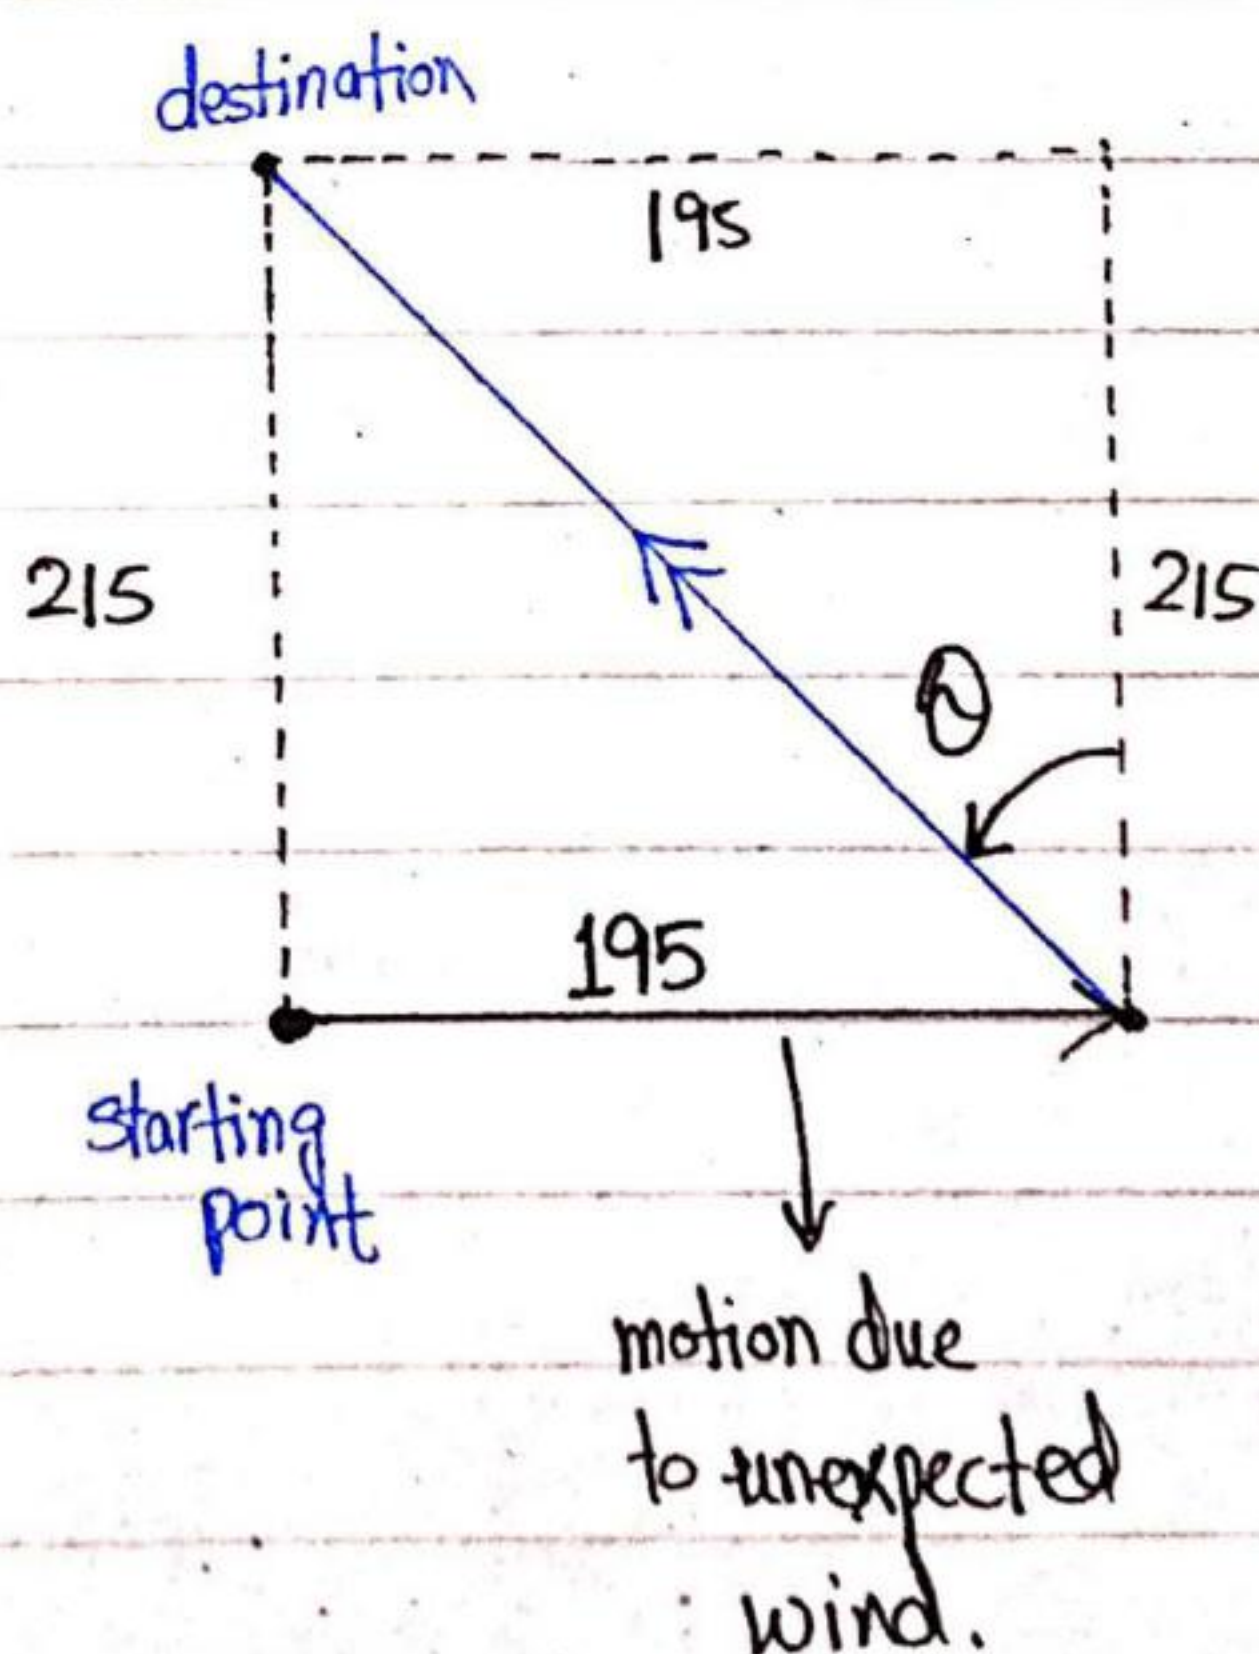 destination
195
215
215
θ
195
starting
point
motion due
to unexpected
wind.